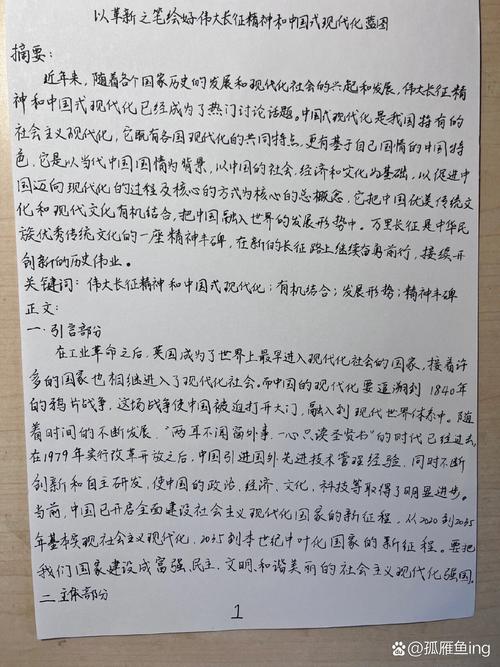 以革新之笔绘好伟大长征精神和中国式现代化蓝图
摘要：
近年来，随着各个国家历史的发展和现代化社会的兴起和发展，伟大长征精
神和中国式现代化已经成为了热门讨论话题。中国式现代化是我国持有的
社会主义现代化，它既有各国现代化的共同特点，更有基于自己国情的中国特
色，它是以当代中国国情为背景，以中国的社会、经济和文化为基础，以促进中
国迈向现代化的过程及核心的方式为核心的总概念，它把中国优美传统文
化和现代文化有机结合，把中国融入世界的发展形势中。万里长征是中华民
族优秀传统文化的一座精神丰碑，在新的长征路上继续奋勇前行，接续开
创新的历史伟业。
关键词：伟大长征精神和中国式现代化；有机结合；发展形势；精神丰碑
正文：
一、引言部分
在工业革命之后，英国成为了世界上最早进入现代化社会的国家，接着许
多的国家也相继进入了现代化社会。而中国的现代化要追溯到1840年
的鸦片战争，这场战争使中国被迫打开大门，融入到现代世界体系中。随
着时间的不断发展，“两耳不闻窗外事，一心只读圣贤书”的时代已经过去，
在1979年实行改革开放之后，中国引进国外先进技术管理经验，同时不断
创新和自主研发，使中国的政治、经济、文化、科技等取得了明显进步。
当前，中国已开启全面建设社会主义现代化国家的新征程，从2020到2035
年基本实现社会主义现代化，2035到本世纪中叶化国家的新征程。要把
我们国家建设成富强、民主、文明、和谐美丽的社会主义现代化强国。
二、主体部分
1
Baidu百家号@孤雁鱼ing